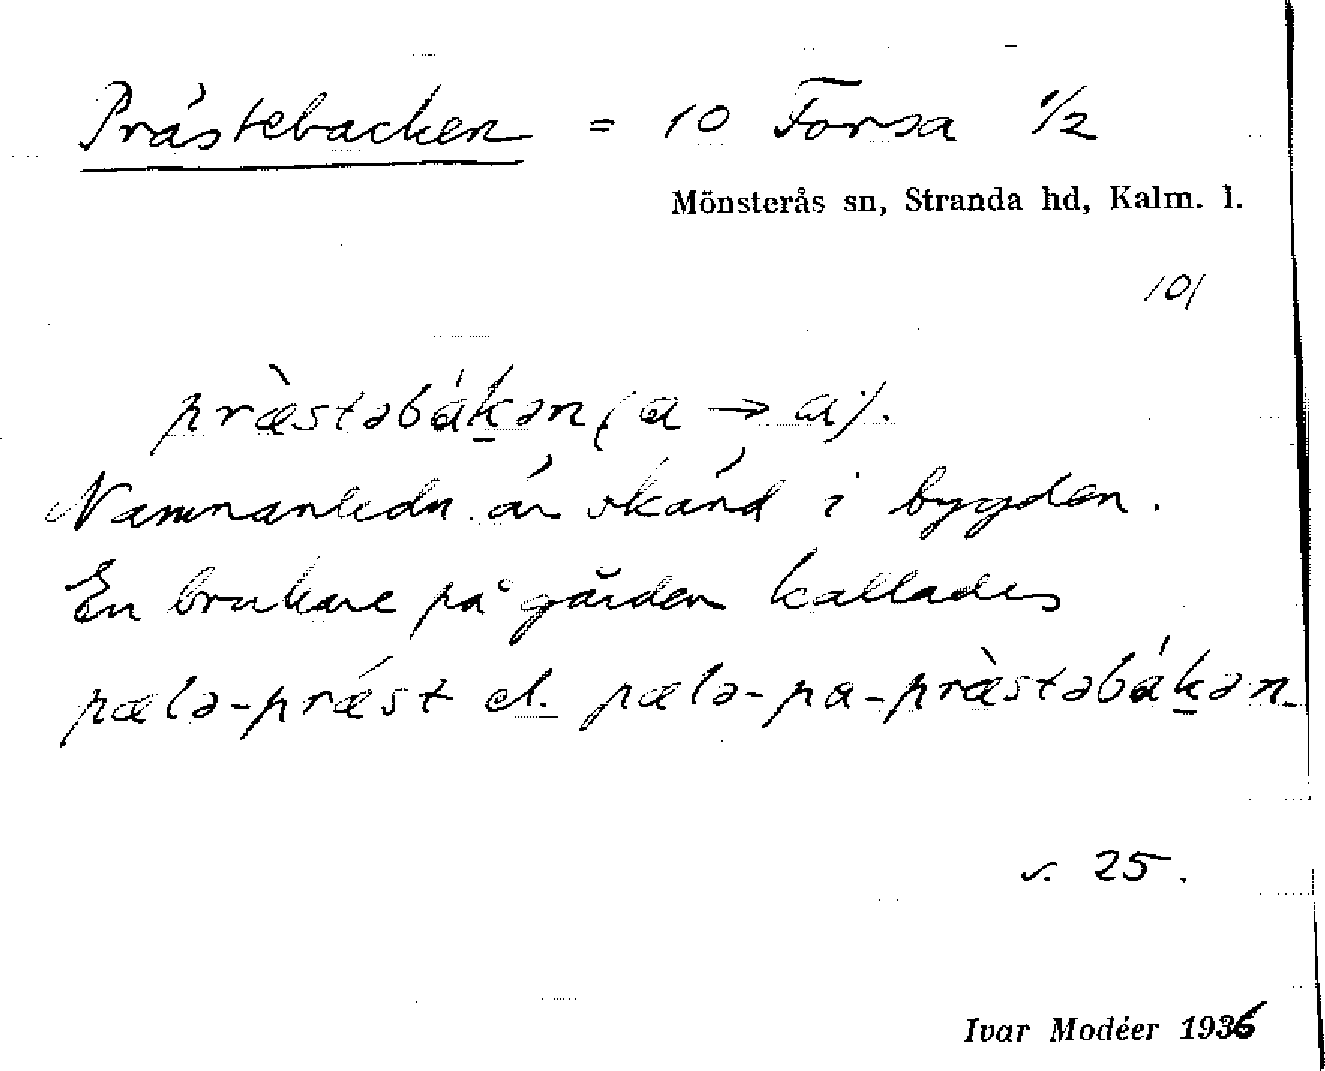 Prästebacken = 10 Forsa 1/2
Mönsterås sn, Stranda hd, Kalm. l.
101
præ̀stəbák̲ən (a → ɑ).
Namnanledn. är okänd i bygden.
En brukare på gården kallades
pælə-prǽst el. pælə-pa-præ̀stəbák̲ən.
s. 25.
Ivar Modéer 1936